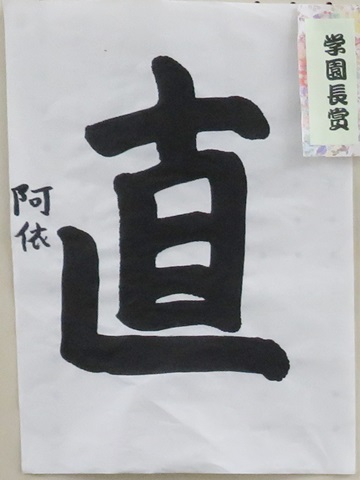 学園長賞
直
阿依